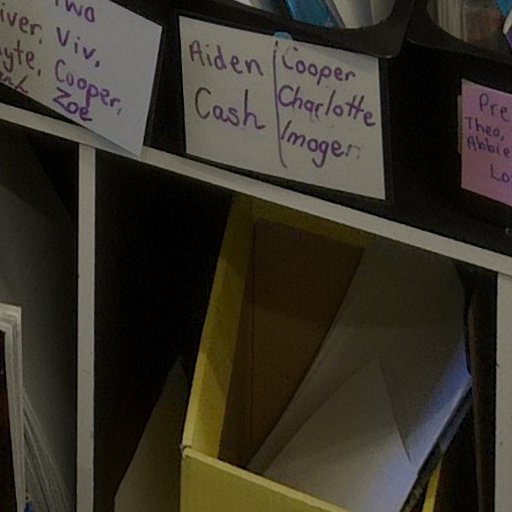 Two
Viv,
Cooper,
Zoe
Aiden
Cash
Cooper
Charlotte
Imogen
Pre
Theo,
Abbie